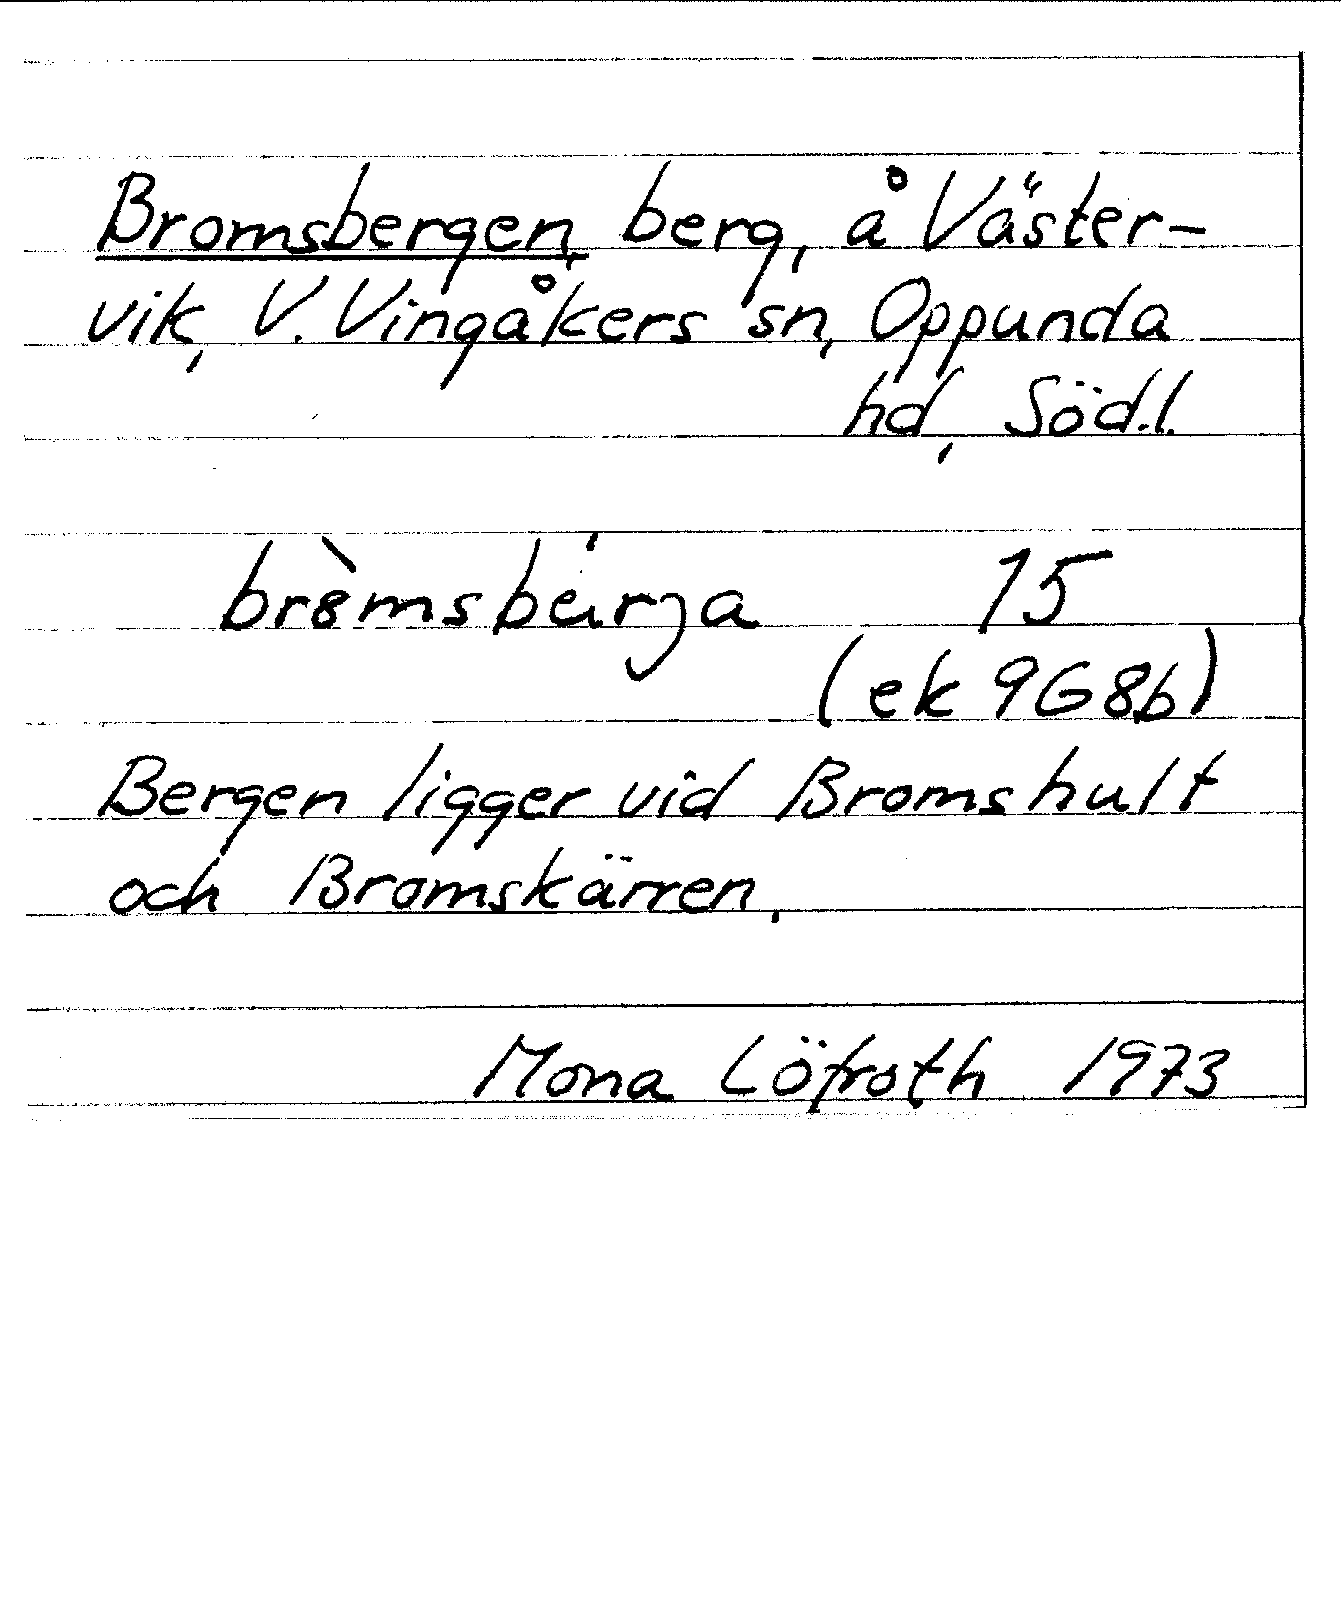 Bromsbergen, berg, å Väster-
vik, V. Vingåkers sn, Oppunda
hd, Söd.l.
15
(ek 9G8b)
Bergen ligger vid Bromshult
och Bromskärren.
Mona Löfroth 1973